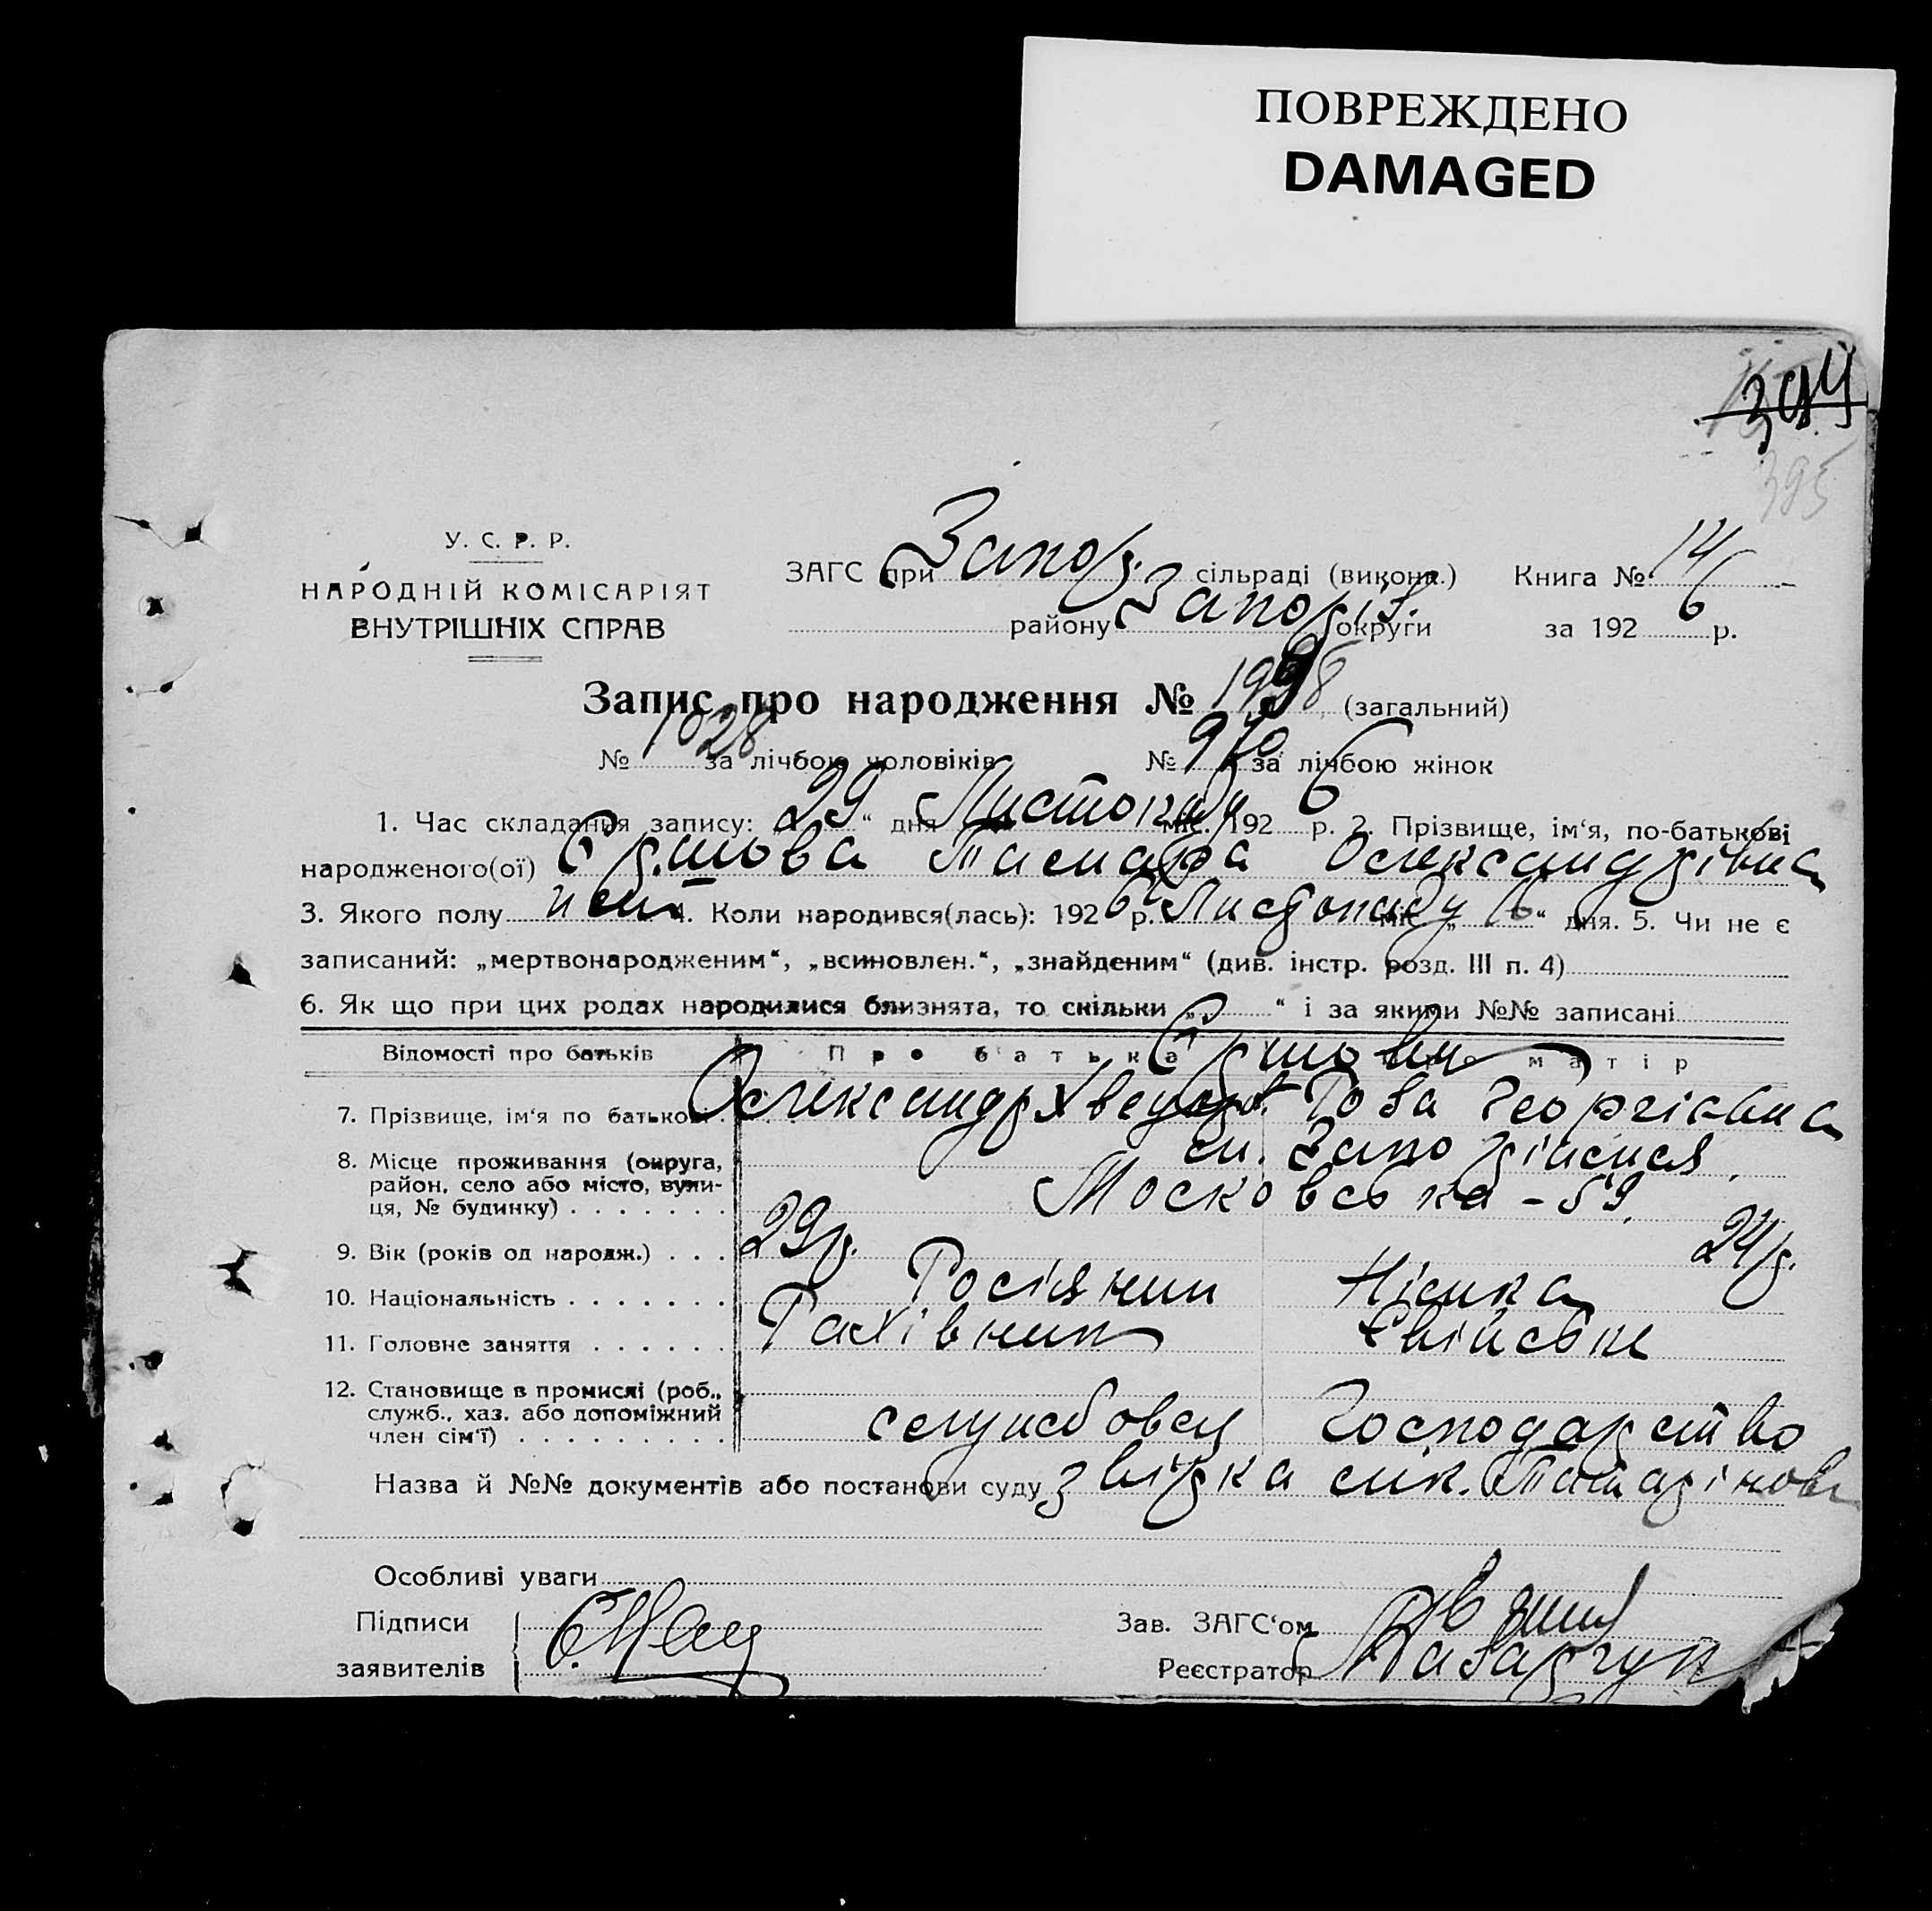 ПОВРЕЖДЕНО
DAMAGED
394
395
У. С. Р. Р.
НАРОДНІЙ КОМІСАРІЯТ
ВНУТРІШНІХ СПРАВ
ЗАГС при Запор. сільраді (викони.) Книга № 14
району Запоріз. округи за 1926 р.
Запис про народження № 1998 (загальний)
№ 1028 за лічбою чоловіків № 970 за лічбою жінок
1. Час складання запису: „29“ дня Листопаду міс. 1926 р. 2. Прізвище, ім‘я, по-батькові
народженого(ої) Єршова Тамара Олександрівна
3. Якого полу жін. 4. Коли народився(лась): 1926 р. Листопаду міс. „16“ дня. 5. Чи не є
записаний: „мертвонародженим“, „всиновлен.“, „знайденим“ (див. інстр. розд. III п. 4)
6. Як що при цих родах народилися близнята, то скільки „ “ і за якими №№ записані
Відомості про батьків Про батька Про матір
Єршови
7. Прізвище, ім‘я по батькові. Олександр Хведоров. Роза Георгіевна
8. Місце проживання (округа, район, село або місто, вули-ця, № будинку) . . . . . . . м. Запоріжжя,
Московська - 59.
9. Вік (років од народж.) . . . 29 р. 24 р.
10. Національність . . . . . . . Росіянин Німка
11. Головне заняття . . . . . . Рахівник Хвійське
12. Становище в промислі (роб., служб., хаз. або допоміжний член сім‘ї) . . . . . . . . . . службовец Господарство
Назва й №№ документів або постанови суду звірка лік. Татарінови
Особливі уваги
Підписи
заявителів
Зав. ЗАГС‘ом
Реєстратор Назарчук